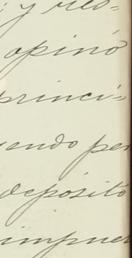 opinó
princi-
endo per
depósito
impues